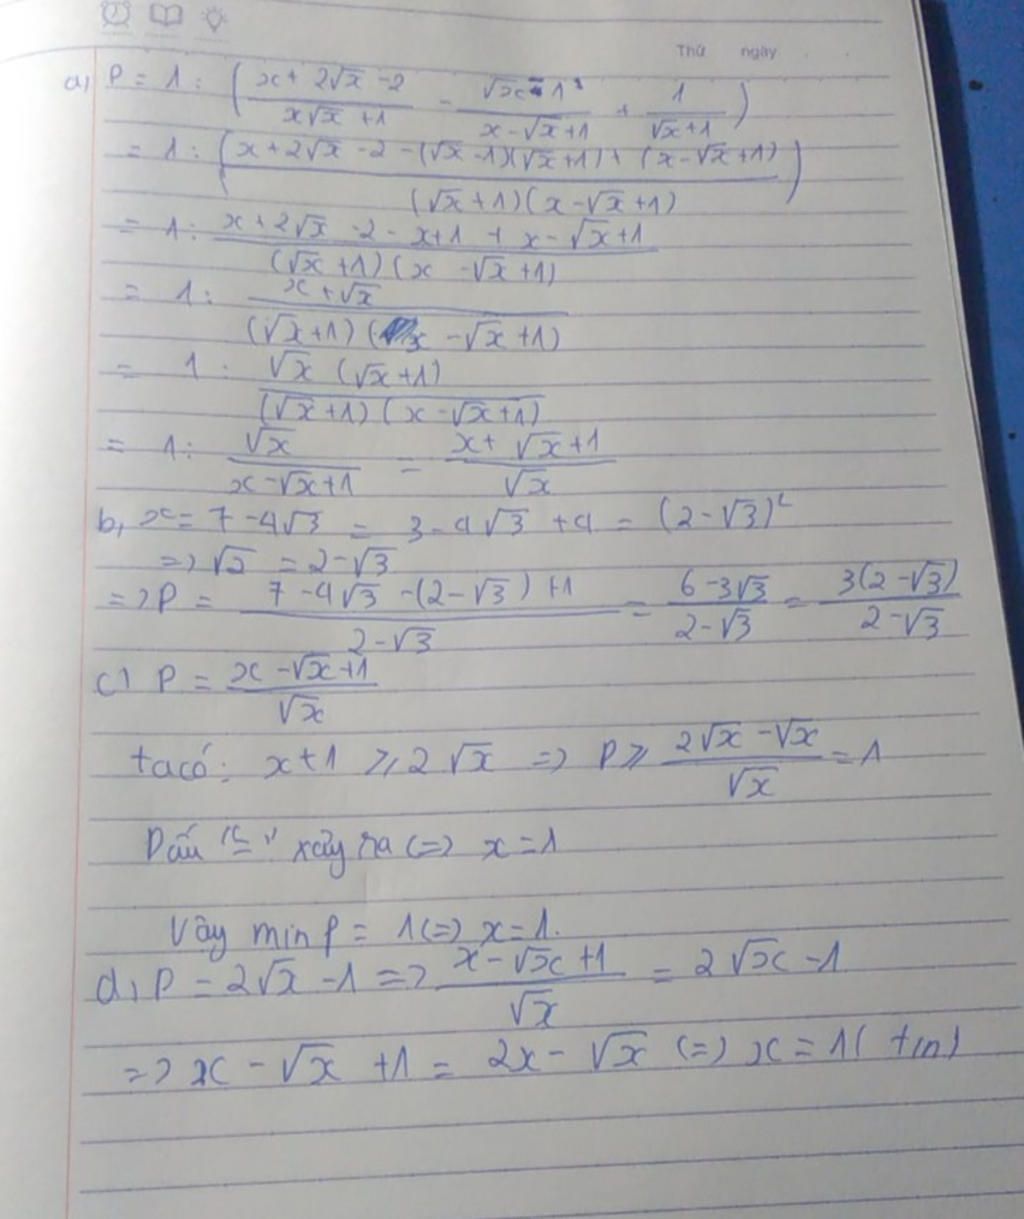 Thứ ngày
a, P = 1 : ( (x + 2√x - 2)/(x√x + 1) - (√x - 1)/(x - √x + 1) + 1/(√x + 1) )
= 1 : ( (x + 2√x - 2 - (√x - 1)(√x + 1) + (x - √x + 1))/((√x + 1)(x - √x + 1)) )
= 1 : (x + 2√x - 2 - x + 1 + x - √x + 1)/((√x + 1)(x - √x + 1))
= 1 : (x + √x)/((√x + 1)(x - √x + 1))
= 1 : (√x(√x + 1))/((√x + 1)(x - √x + 1))
= 1 : √x/(x - √x + 1) = (x + √x + 1)/√x
b, x = 7 - 4√3 = 3 - 4√3 + 4 = (2 - √3)²
=> √x = 2 - √3
=> P = (7 - 4√3 - (2 - √3) + 1)/(2 - √3) = (6 - 3√3)/(2 - √3) = 3(2 - √3)/(2 - √3)
c) P = (x - √x + 1)/√x
ta có: x + 1 ⩾ 2√x => P ⩾ (2√x - √x)/√x = 1
Dấu "=" xảy ra (=) x = 1
Vậy min P = 1 (=) x = 1.
d, P = 2√x - 1 => (x - √x + 1)/√x = 2√x - 1
=> x - √x + 1 = 2x - √x (=) x = 1 (tm)